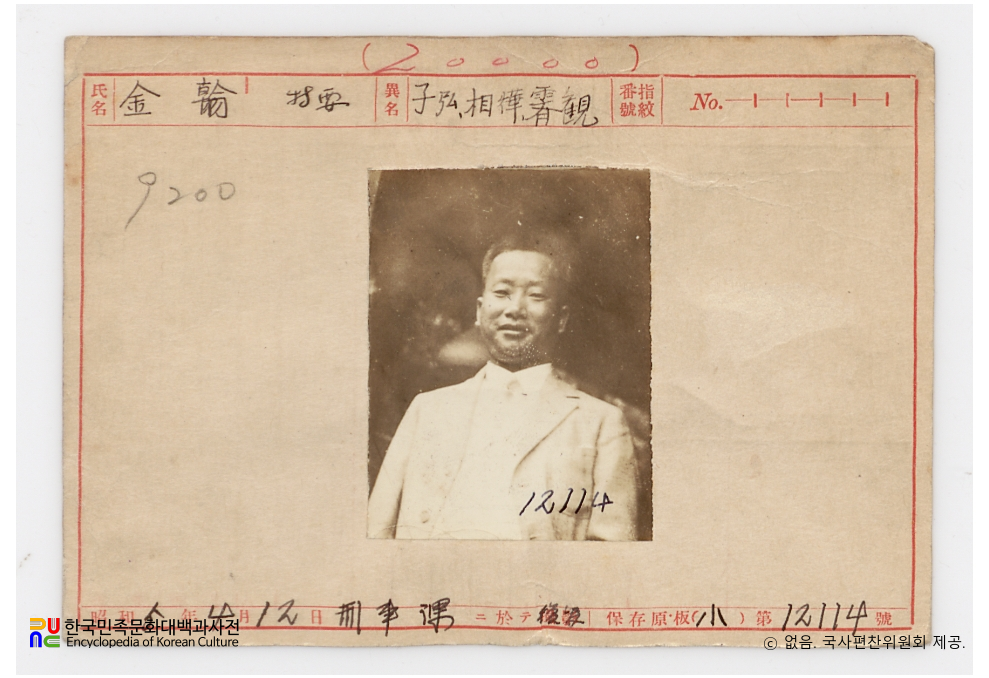 (20000)
氏名 金翰 特要 異名 子弘、相樺、霽観 指紋番號 No.
9200
12114
昭和 年4月12日 刑事課ニ於テ複寫 保存原板(小)第12114號
한국민족문화대백과사전
Encyclopedia of Korean Culture
ⓒ 없음. 국사편찬위원회 제공.